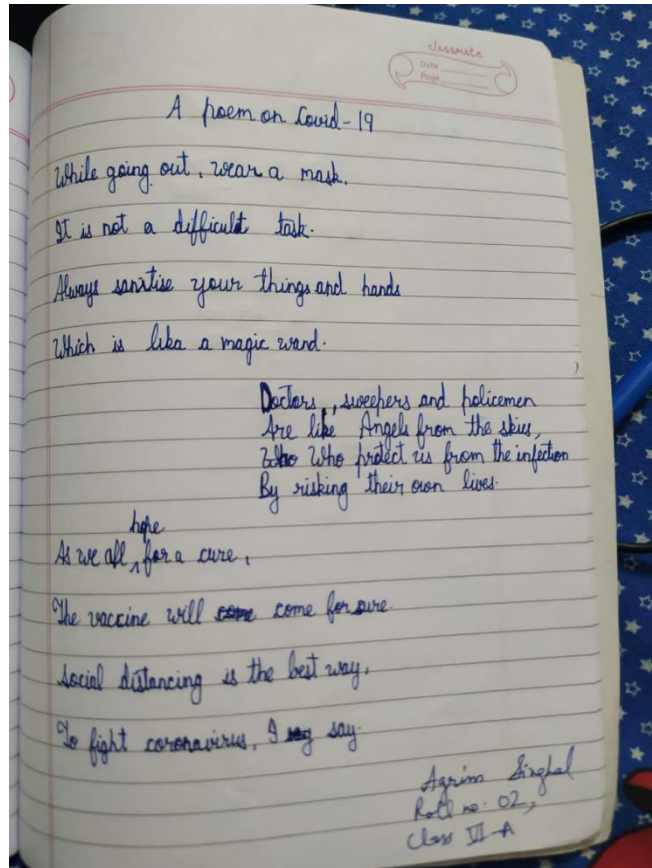 classmate
Date
Page
A poem on Covid-19
While going out, wear a mask.
It is not a difficult task.
Always sanitise your things and hands
Which is lika a magic wand.
Doctors, sweepers and policemen
Are like Angels from the skies,
Who Who protect us from the infection
By risking their own lives.
hope
As we all ^ for a cure,
The vaccine will come come for sure.
Social distancing is the best way,
To fight coronavirus, I say.
Agrim Singhal
Roll no. 02,
Class VI-A